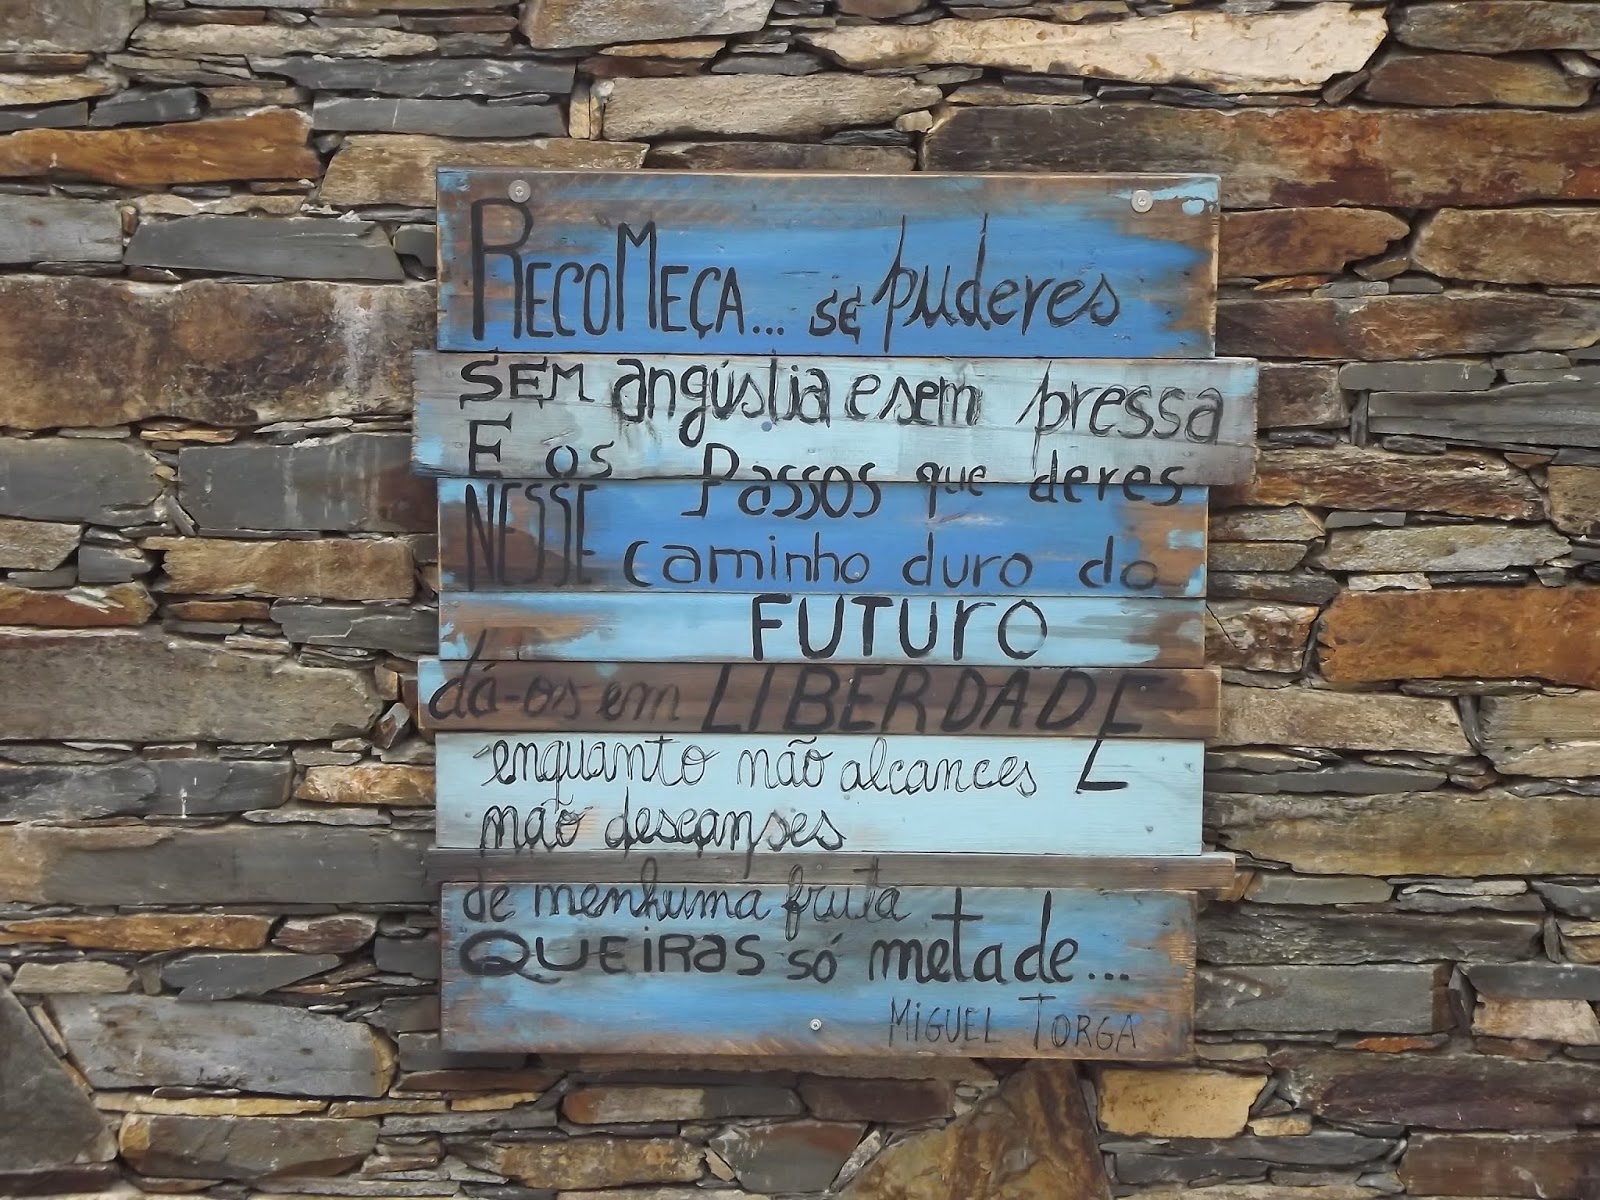 RECOMEÇA... se puderes
SEM angústia e sem pressa
E os Passos que deres
NESSE caminho duro do
FUTURO
dá-os em LIBERDADE
enquanto não alcances
não descanses
de nenhuma fruta
QUEIRAS só metade...
MIGUEL TORGA